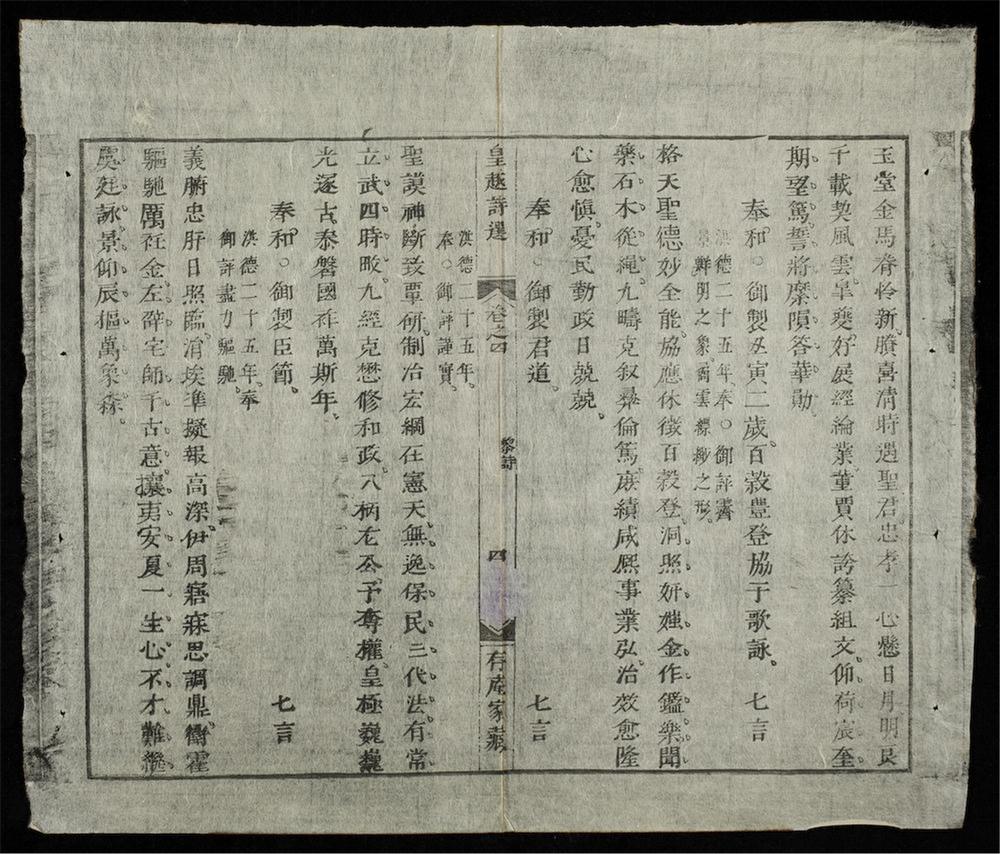 玉堂金馬眷怜新。賸喜清時遇聖君忠孝一心懸日月明良
千載契風雲。皐夔好展經綸業。董賈休誇纂組文。仰荷宸奎
期望篤。誓將糜隕答華勛。
奉和。御製丑寅二歲。百穀豐登協于歌詠。七言
洪德二十五年。奉〇御評霽
景鮮明之象。矞雲縹緲之形。
格天聖德妙全能。協應休徵百穀登。洞照妍媸金作鑑。樂聞
藥石木從繩。九疇克叙彞倫篤。庶績咸熙事業弘。治效愈隆
心愈愼。憂民勤政日兢兢。
奉和。御製君道。七言
皇越詩選 卷之四 黎詩 四 存庵家藏
洪德二十五年。
奉〇御評謹實。
聖謨神斷致覃研。制治宏綱在憲天。無逸保民三代法。有常
立武四時畋。九經克懋修和政。八柄在公予奪權。皇極巍巍
光邃古。泰磐國祚萬斯年。
奉和。御製臣節。七言
洪德二十五年。奉
御評盡力驅馳。
義腑忠肝日照臨。涓埃準擬報高深。伊周寤寐思調鼎。衞霍
驅馳厲衽金。左辟宅師千古意。攘夷安夏一生心。不才難繼
虞廷詠。景仰辰樞萬象森。